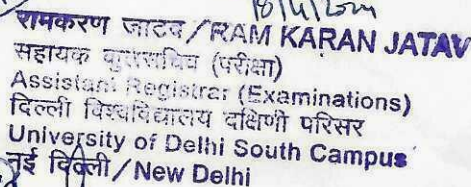 18/4/2024
रामकरण जाटव/RAM KARAN JATAV
सहायक कुलसचिव (परीक्षा)
Assistant Registrar (Examinations)
दिल्ली विश्वविद्यालय दक्षिणी परिसर
University of Delhi South Campus
नई दिल्ली/New Delhi